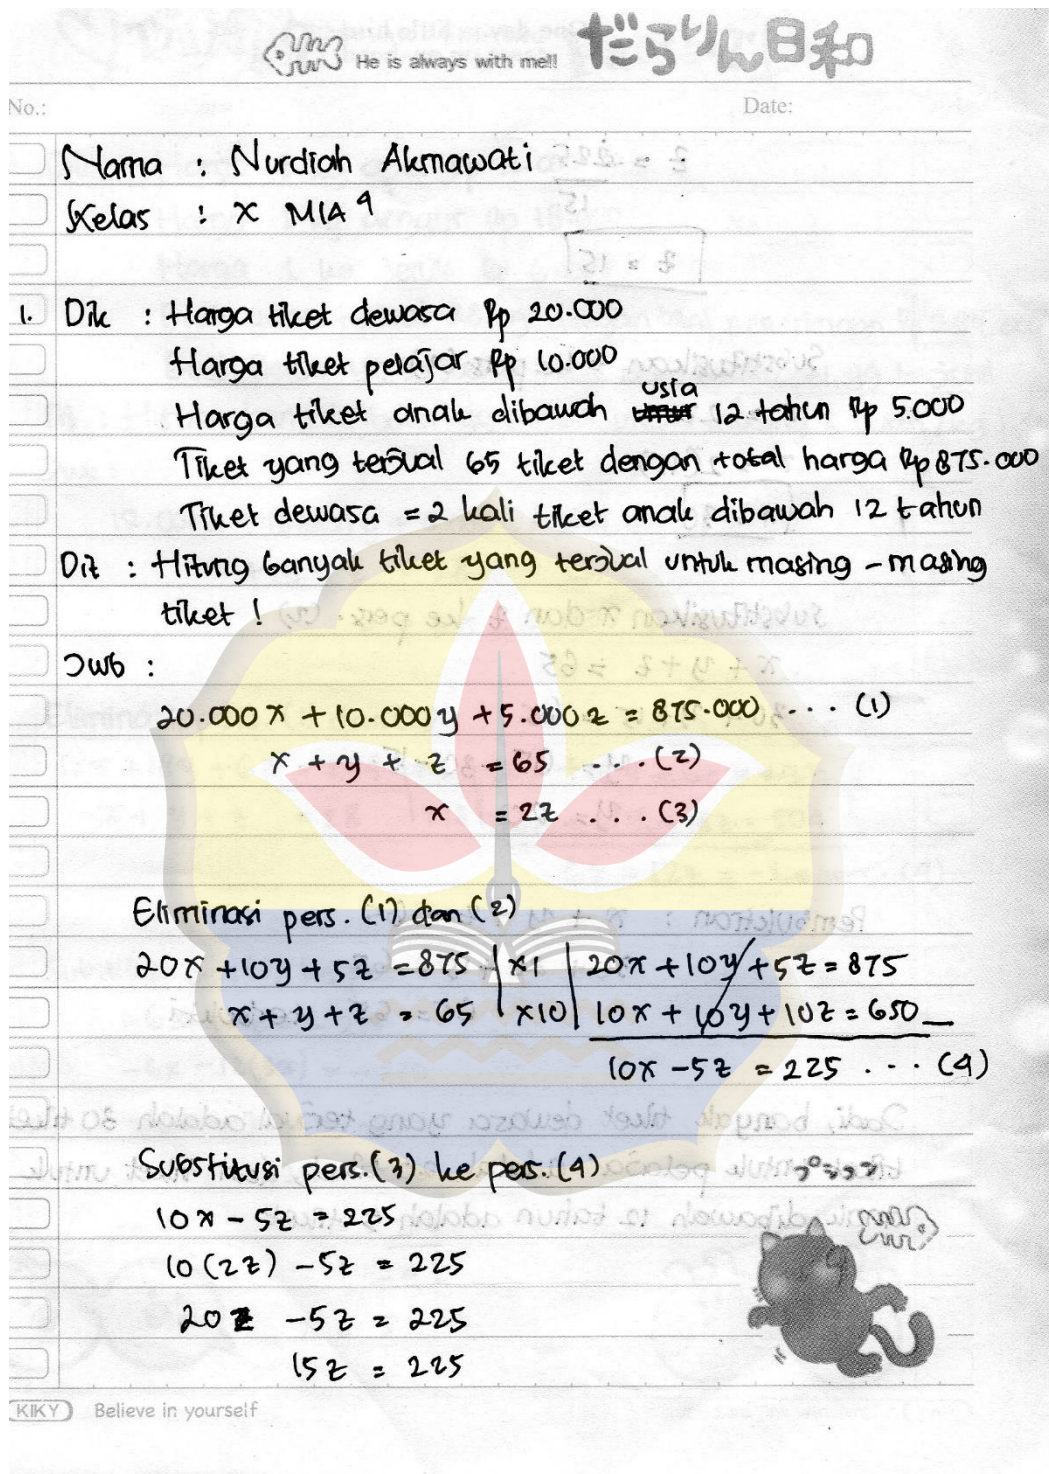 He is always with me!! だらりん日和
No.: Date:
Nama : Nurdiah Akmawati
Kelas : X MIA 4
1. Dik : Harga tiket dewasa Rp 20.000
Harga tiket pelajar Rp 10.000
Harga tiket anak dibawah usia 12 tahun Rp 5.000
Tiket yang terjual 65 tiket dengan total harga Rp 875.000
Tiket dewasa = 2 kali tiket anak dibawah 12 tahun
Dit : Hitung banyak tiket yang terjual untuk masing - masing
tiket !
Jwb :
20.000 x + 10.000 y + 5.000 z = 875.000 ... (1)
x + y + z = 65 ... (2)
x = 2z ... (3)
Eliminasi pers. (1) dan (2)
20x + 10y + 5z = 875 | x1 | 20x + 10y + 5z = 875
x + y + z = 65 | x10 | 10x + 10y + 10z = 650 —
10x - 5z = 225 ... (4)
Substitusi pers. (3) ke pers. (4)
10x - 5z = 225
10 (2z) - 5z = 225
20z - 5z = 225
15z = 225
KIKY Believe in yourself